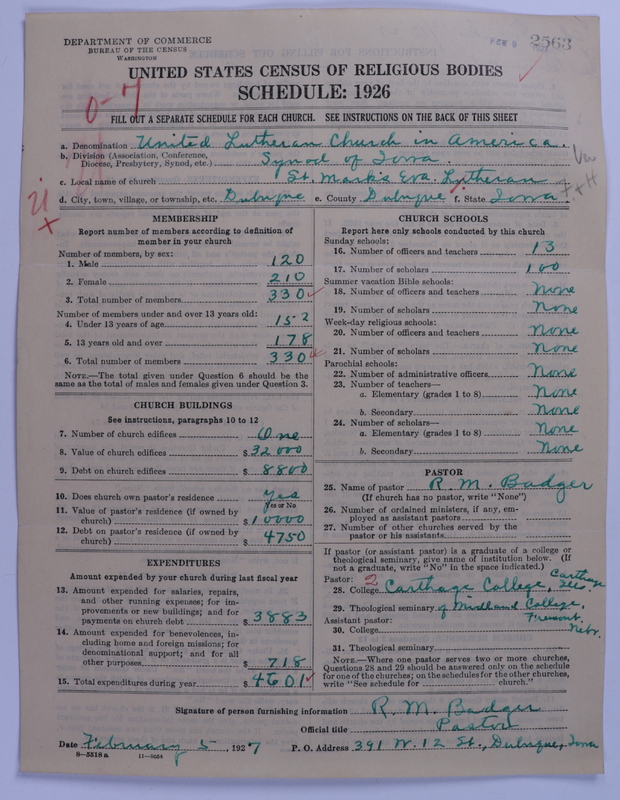 DEPARTMENT OF COMMERCE
BUREAU OF THE CENSUS
WASHINGTON
FEB 9 1927
2563
UNITED STATES CENSUS OF RELIGIOUS BODIES
SCHEDULE: 1926
0-7
FILL OUT A SEPARATE SCHEDULE FOR EACH CHURCH. SEE INSTRUCTIONS ON THE BACK OF THIS SHEET
a. Denomination United Lutheran Church in America.
b. Division (Association, Conference, Diocese, Presbytery, Synod, etc.) Synod of Iowa.
c. Local name of church St. Mark's Eva. Lutheran
d. City, town, village, or township, etc. Dubuque e. County Dubuque f. State Iowa.
MEMBERSHIP
Report number of members according to definition of member in your church
Number of members, by sex:
1. Male 120
2. Female 210
3. Total number of members 330
Number of members under and over 13 years old:
4. Under 13 years of age 152
5. 13 years old and over 178
6. Total number of members 330
NOTE.—The total given under Question 6 should be the same as the total of males and females given under Question 3.
CHURCH BUILDINGS
See instructions, paragraphs 10 to 12
7. Number of church edifices One
8. Value of church edifices $32000
9. Debt on church edifices $8800
10. Does church own pastor's residence Yes
Yes or No
11. Value of pastor's residence (if owned by church) $10000
12. Debt on pastor's residence (if owned by church) $4750
EXPENDITURES
Amount expended by your church during last fiscal year
13. Amount expended for salaries, repairs, and other running expenses; for improvements or new buildings; and for payments on church debt $3883
14. Amount expended for benevolences, including home and foreign missions; for denominational support; and for all other purposes $718
15. Total expenditures during year $4601
CHURCH SCHOOLS
Report here only schools conducted by this church
Sunday schools:
16. Number of officers and teachers 13
17. Number of scholars 100
Summer vacation Bible schools:
18. Number of officers and teachers None
19. Number of scholars None
Week-day religious schools:
20. Number of officers and teachers None
21. Number of scholars None
Parochial schools:
22. Number of administrative officers None
23. Number of teachers—
a. Elementary (grades 1 to 8) None
b. Secondary None
24. Number of scholars—
a. Elementary (grades 1 to 8) None
b. Secondary None
PASTOR
25. Name of pastor R. M. Badger
(If church has no pastor, write "None")
26. Number of ordained ministers, if any, employed as assistant pastors
27. Number of other churches served by the pastor or his assistants
If pastor (or assistant pastor) is a graduate of a college or theological seminary, give name of institution below. (If not a graduate, write "No" in the space indicated.)
Pastor: 2
28. College Carthage College, Carthage Ills.
29. Theological seminary of Midland College, Fremont, Nebr.
Assistant pastor:
30. College
31. Theological seminary
NOTE.—Where one pastor serves two or more churches, Questions 28 and 29 should be answered only on the schedule for one of the churches; on the schedules for the other churches, write "See schedule for church."
Signature of person furnishing information R. M. Badger
Official title Pastor
Date February 5, 1927 P. O. Address 391 W. 12 St., Dubuque, Iowa
8—5518 a 11—9054